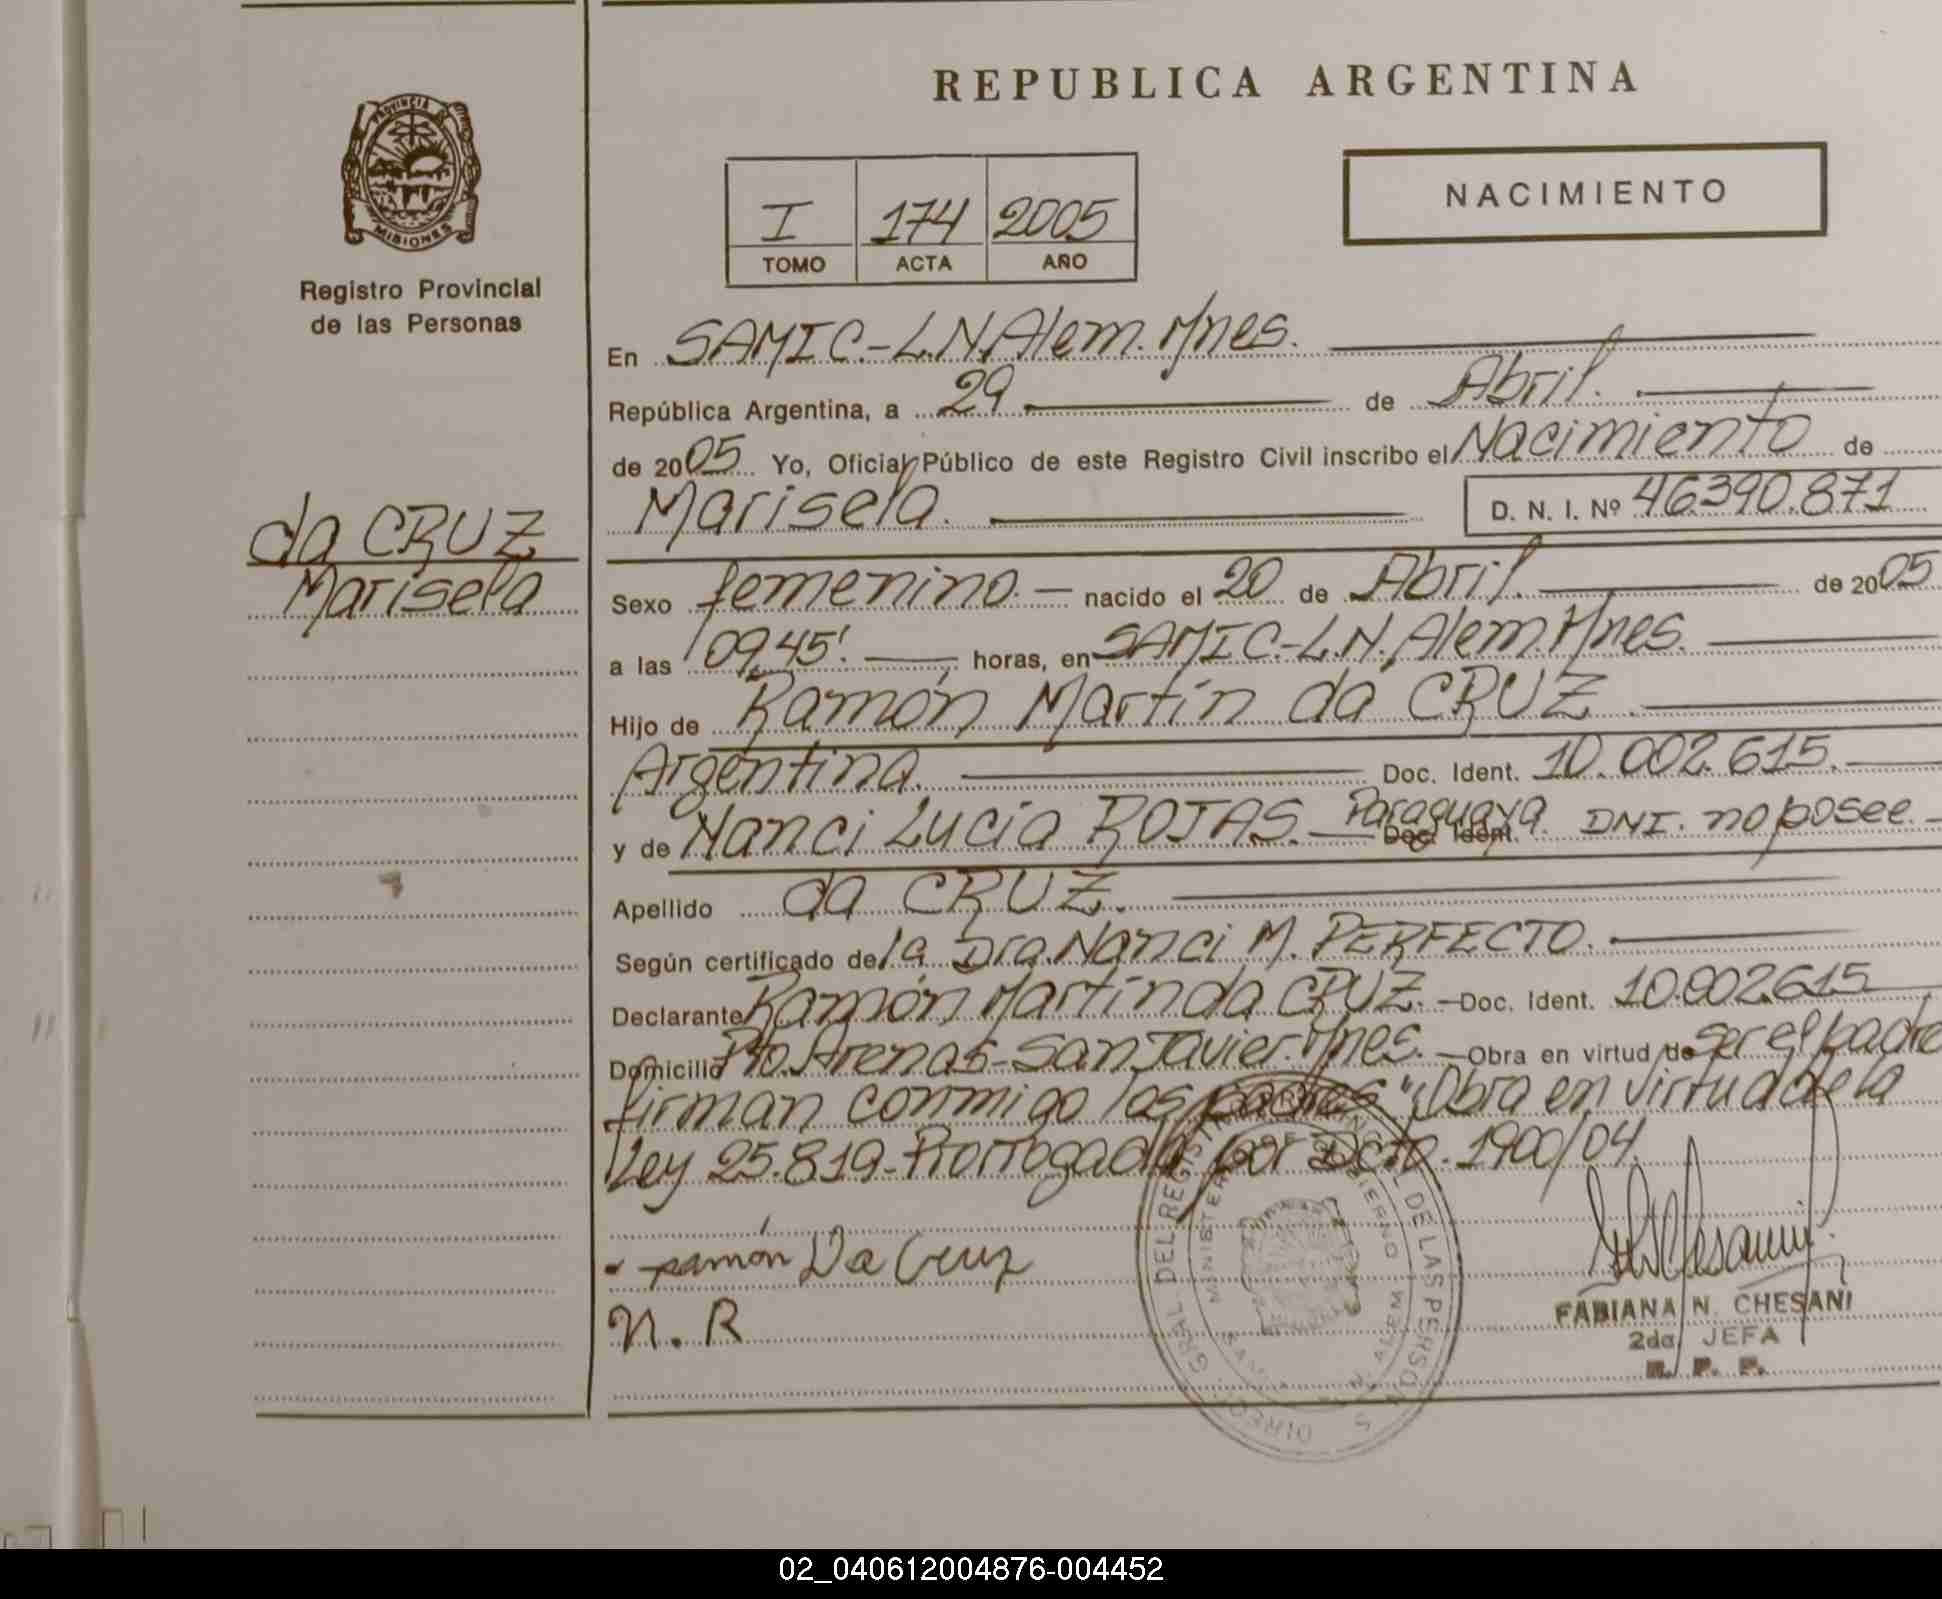 REPUBLICA ARGENTINA
PROVINCIA DE
MISIONES
Registro Provincial
de las Personas
I 174 2005
TOMO ACTA AÑO
NACIMIENTO
En SAMIC.-L.N.Alem.Mnes.
República Argentina, a 29 de Abril.
de 2005 Yo, Oficial Público de este Registro Civil inscribo el Nacimiento de
Marisela. D. N. I. Nº 46.390.871
da CRUZ
Marisela
Sexo femenino.- nacido el 20 de Abril. de 2005
a las 09,45'. horas, en SAMIC.-L.N.Alem.Mnes.
Hijo de Ramón Martín da CRUZ
Argentina. Doc. Ident. 10.002.615.
y de Nanci Lucia ROJAS.- Paraguaya. Doc. Ident. DNI. no posee.-
Apellido da CRUZ.
Según certificado de la Dra.Nanci M. PERFECTO.
Declarante Ramón Martín da CRUZ.- Doc. Ident. 10.002.615
Domicilio Pto.Arenas-San Javier.Mnes.- Obra en virtud de ser el padre
firman conmigo los padres "Obra en virtud de la
Ley 25.819-Prorrogada por Dcto. 1900/04.
ramón Da Cruz
N. R
DIREC. GRAL DEL REGISTRO DE LAS PERSONAS
MINISTERIO DE GOBIERNO
SAMIC L. N. ALEM
FABIANA N. CHESANI
2da JEFA
R. P. P.
02_040612004876-004452